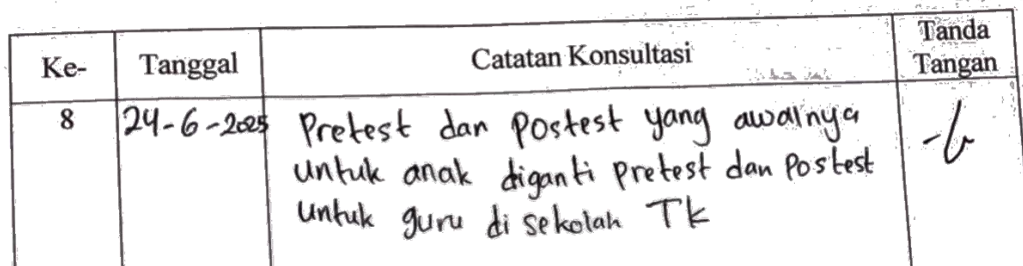 Ke- Tanggal Catatan Konsultasi Tanda Tangan
8 24-6-2025 Pretest dan Postest yang awalnya
untuk anak diganti Pretest dan Postest
untuk guru di sekolah TK